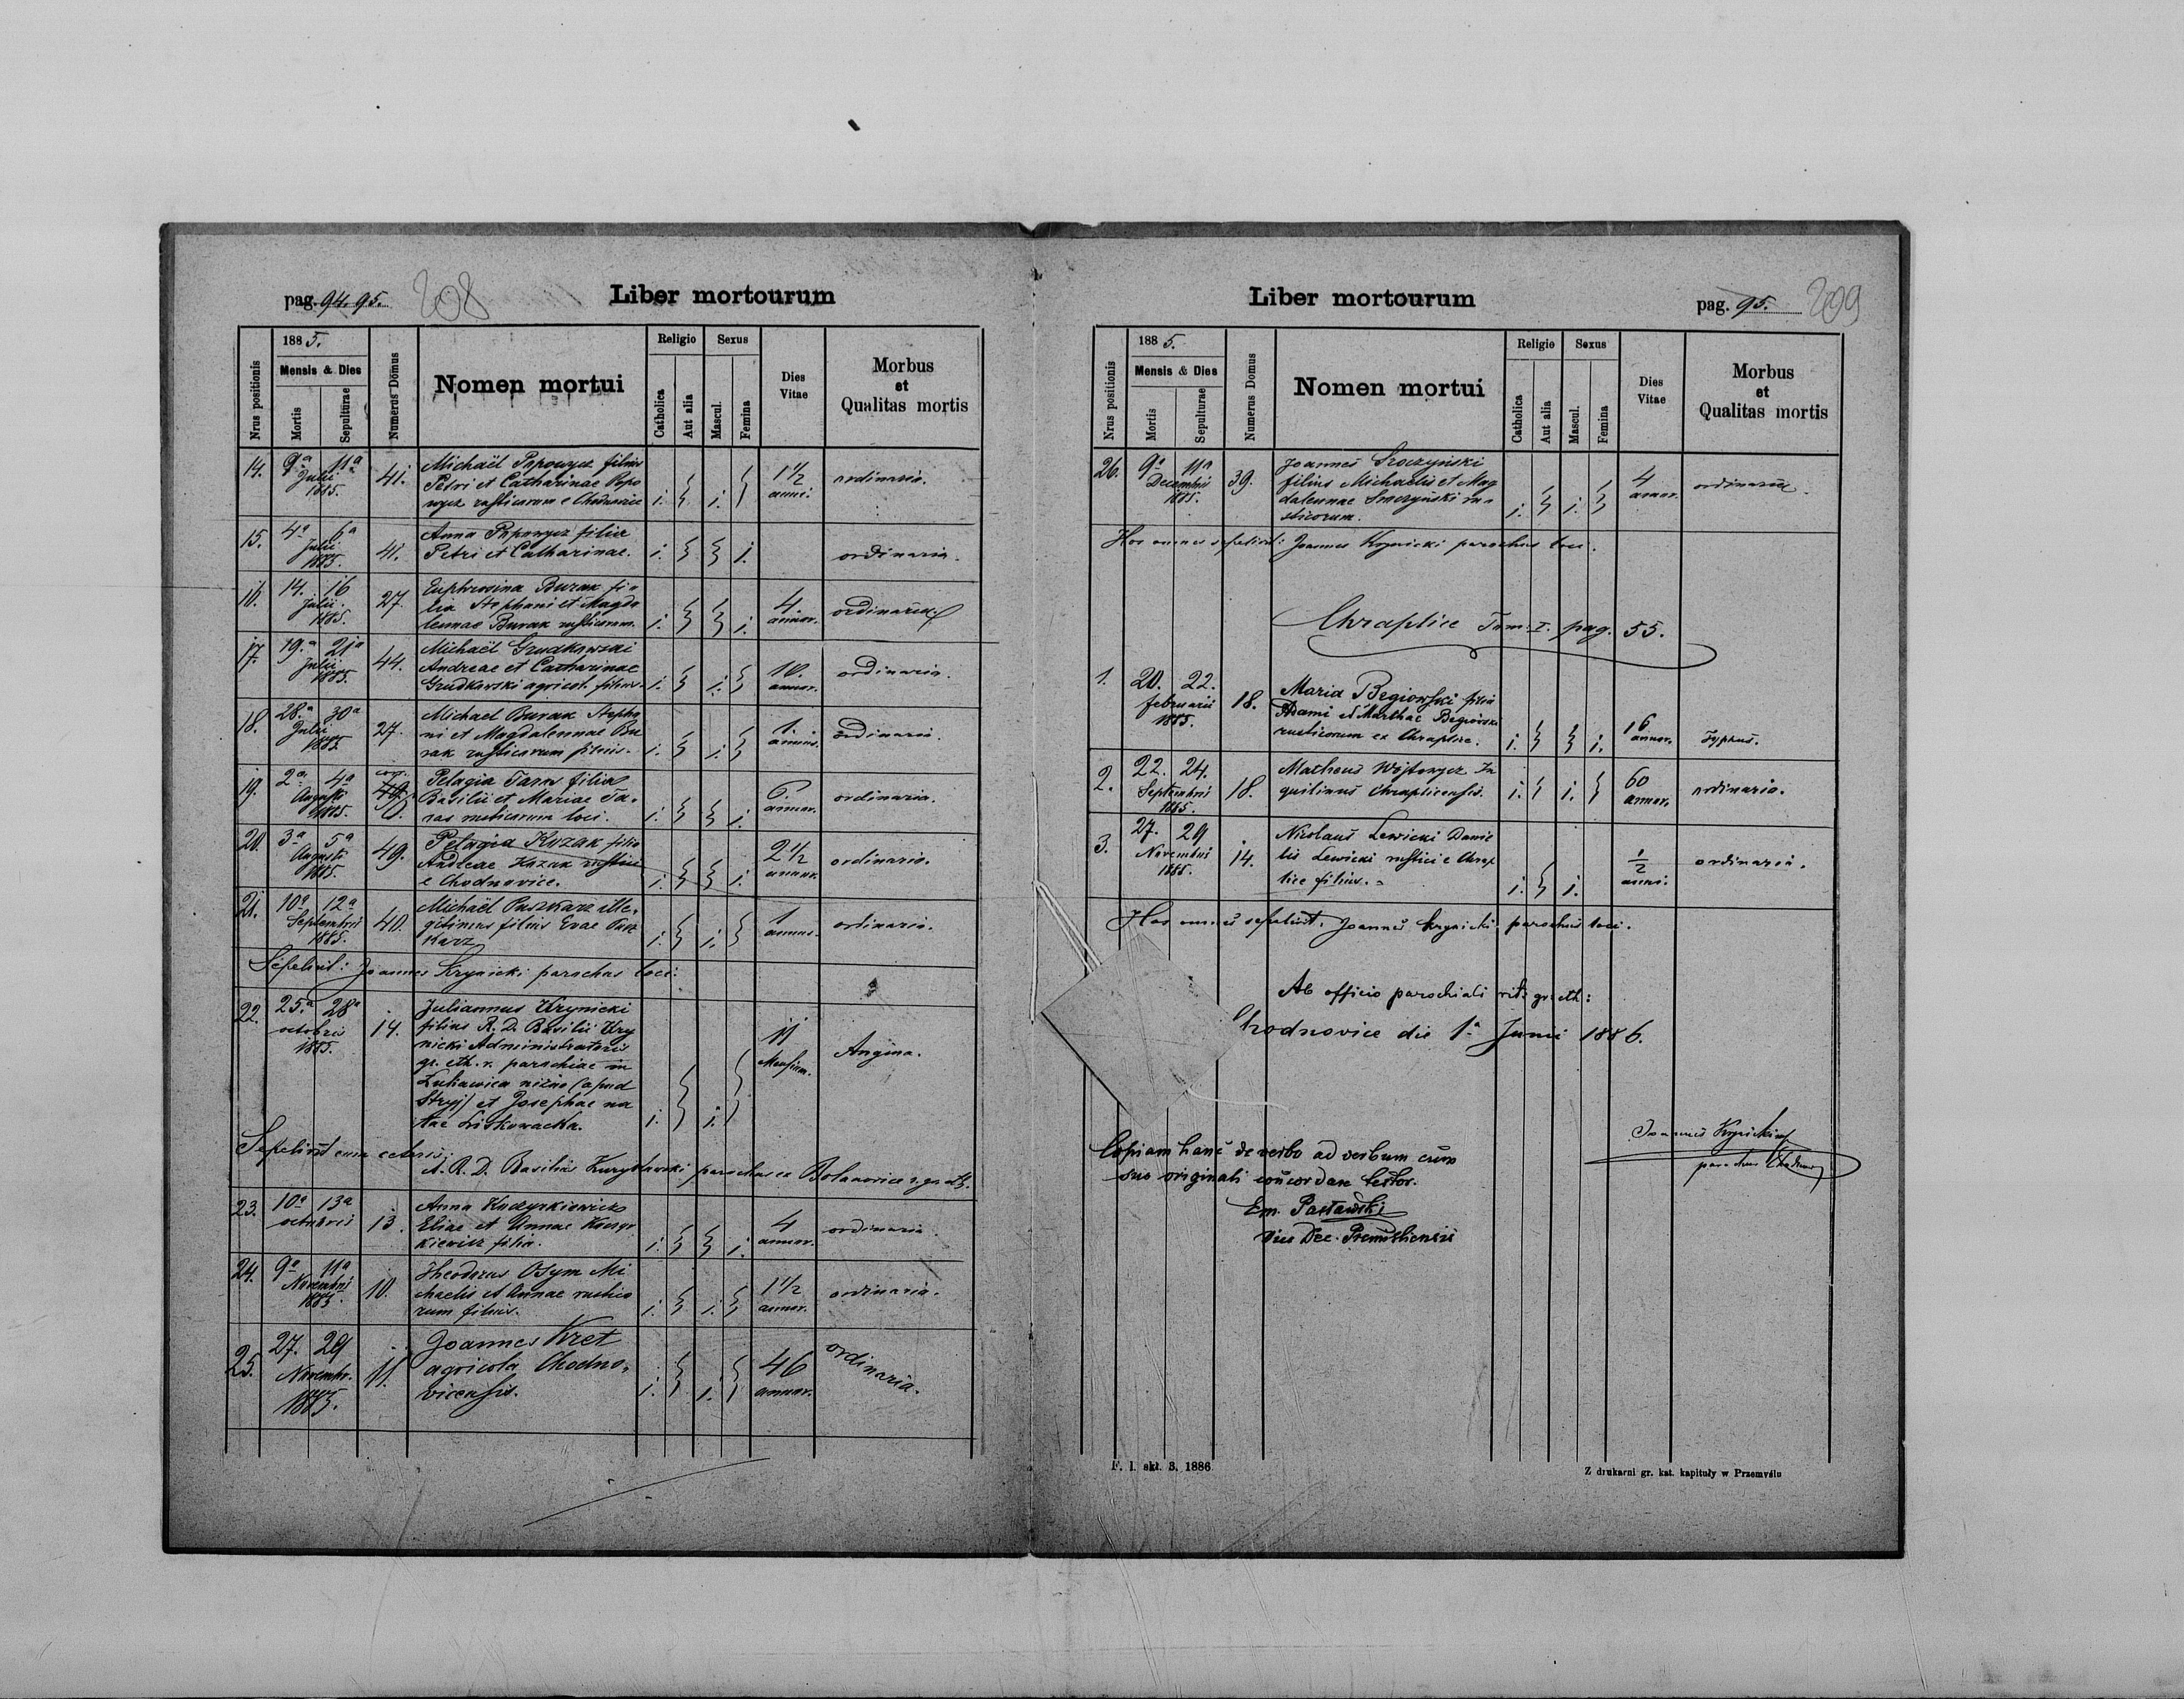 pag. 94. 95. 208 Liber mortourum
Nrus positionis 1885. Mensis & Dies Mortis Sepulturae Numerus Domus Nomen mortui Religio Catholica Aut alia Sexus Mascul. Femina Dies Vitae Morbus et Qualitas mortis
14. 9ª 11ª Julii 1885. 41. Michaël Popowycz filius
Petri et Catharinae Popo
wycz rusticorum e Chodnovice i. i. 1 1/2 anni. ordinaria.
15. 4ª 6ª Julii 1885. 41. Anna Popowycz filia
Petri et Catharinae. i. i. ordinaria.
16. 14. 16 Julii. 1885. 27. Euphrosina Burak fi-
lia Stephani et Magda
lennae Burak rusticorum. i. i. 4. annor. ordinaria.
17. 19.ª 21ª Julii 1885. 44. Michaël Grudkowski
Andreae et Catharinae
Grudkowski agricol. filius. i. i. 10. annor. ordinaria.
18. 28.ª 30ª Julii 1885. 27. Michael Burak Stepha
ni et Magdalennae Bu
rak rusticorum filius. i. i. 1. annus. ordinaria.
19. 2ª 4ª Augusti 1885. Pelagia Taras filia
Basilii et Mariae Ta-
ras rusticorum loci. i. i. 6 annor. ordinaria.
20. 3ª 5ª Augusti 1885. 49. Pelagia Kozak filia
Andreae Kozak rustici
e Chodnovice. i. i. 2 1/2 annor. ordinaria.
21. 10ª 12ª Septembris 1885. 40. Michaël Paszkarz ille-
gitimus filius Evae Pasz
karz i. i. 1 annus. ordinaria.
Sepelivit: Joannes Krynicki parochus loci:
22. 25.ª 28ª octobris 1885. 14. Juliannus Krynicki
filius R. D. Basilii Kry
nicki Administratoris
gr. cth. r. parochiae in
Lukawica niżna (apud
Stryj) et Josephae na
tae Liskowacka. i. i. 11 Mensium. Angina.
Sepelivit cum ceteris:
A. R. D. Basilius parochus ex Bolanovice r. gr. cth.
23. 10ª 13ª octobris 13. Anna
Eliae et Annae
kiewicz filia. i. i. 4 annor. ordinaria.
24. 9ª 11ª Novembris 1885. 10. Theodorus Osym Mi
chaelis et Annae rustico
rum filius. i. i. 1 1/2 annor. ordinaria.
25. 27. 29 Novembr. 1885. 11. Joannes Kret
agricola Chodno-
vicensis. i. i. 46 annor. ordinaria.
Liber mortourum pag. 95. 209
Nrus positionis 1885. Mensis & Dies Mortis Sepulturae Numerus Domus Nomen mortui Religio Catholica Aut alia Sexus Mascul. Femina Dies Vitae Morbus et Qualitas mortis
26. 9ª 11ª Decembris 1885. 39. Joannes Sroczyński
filius Michaelis et Mag
dalennae Sroczyński ru-
sticorum. i. i. 4 annor. ordinaria.
Hos omnes sepelivit: Joannes Krynicki parochus loci.
Chraplice Tom: I. pag. 55.
1. 20. 22. februarii 1885. 18. Maria Begiowski filia
Adami et Marthae Begiowski
rusticorum ex Chraplice. i. i. 16 annor. Typhus.
2. 22. 24. Septembris 1885. 18. Matheus Wojtowycz In
quilinus Chraplicensis. i. i. 60 annor. ordinaria.
3. 27. 29 Novembris 1885. 14. Nicolaus Lewicki Danie
lis Lewicki rustici e Chrap
lice filius. i. i. 1/2 anni. ordinaria.
Hos omnes sepelivit. Joannes Krynicki parochus loci.
Ab officio parochiali rits gr: cth:
Chodnovice die 1ª Junii 1886.
Joannes Krynicki
parochus
Copiam hanc de verbo ad verbum cum
suo originali concordare testor.
Em. Pasławski
Vice Dec. Premisliensis
F. l. akt. 3. 1886.
Z drukarni gr. kat. kapituły w Przemyślu